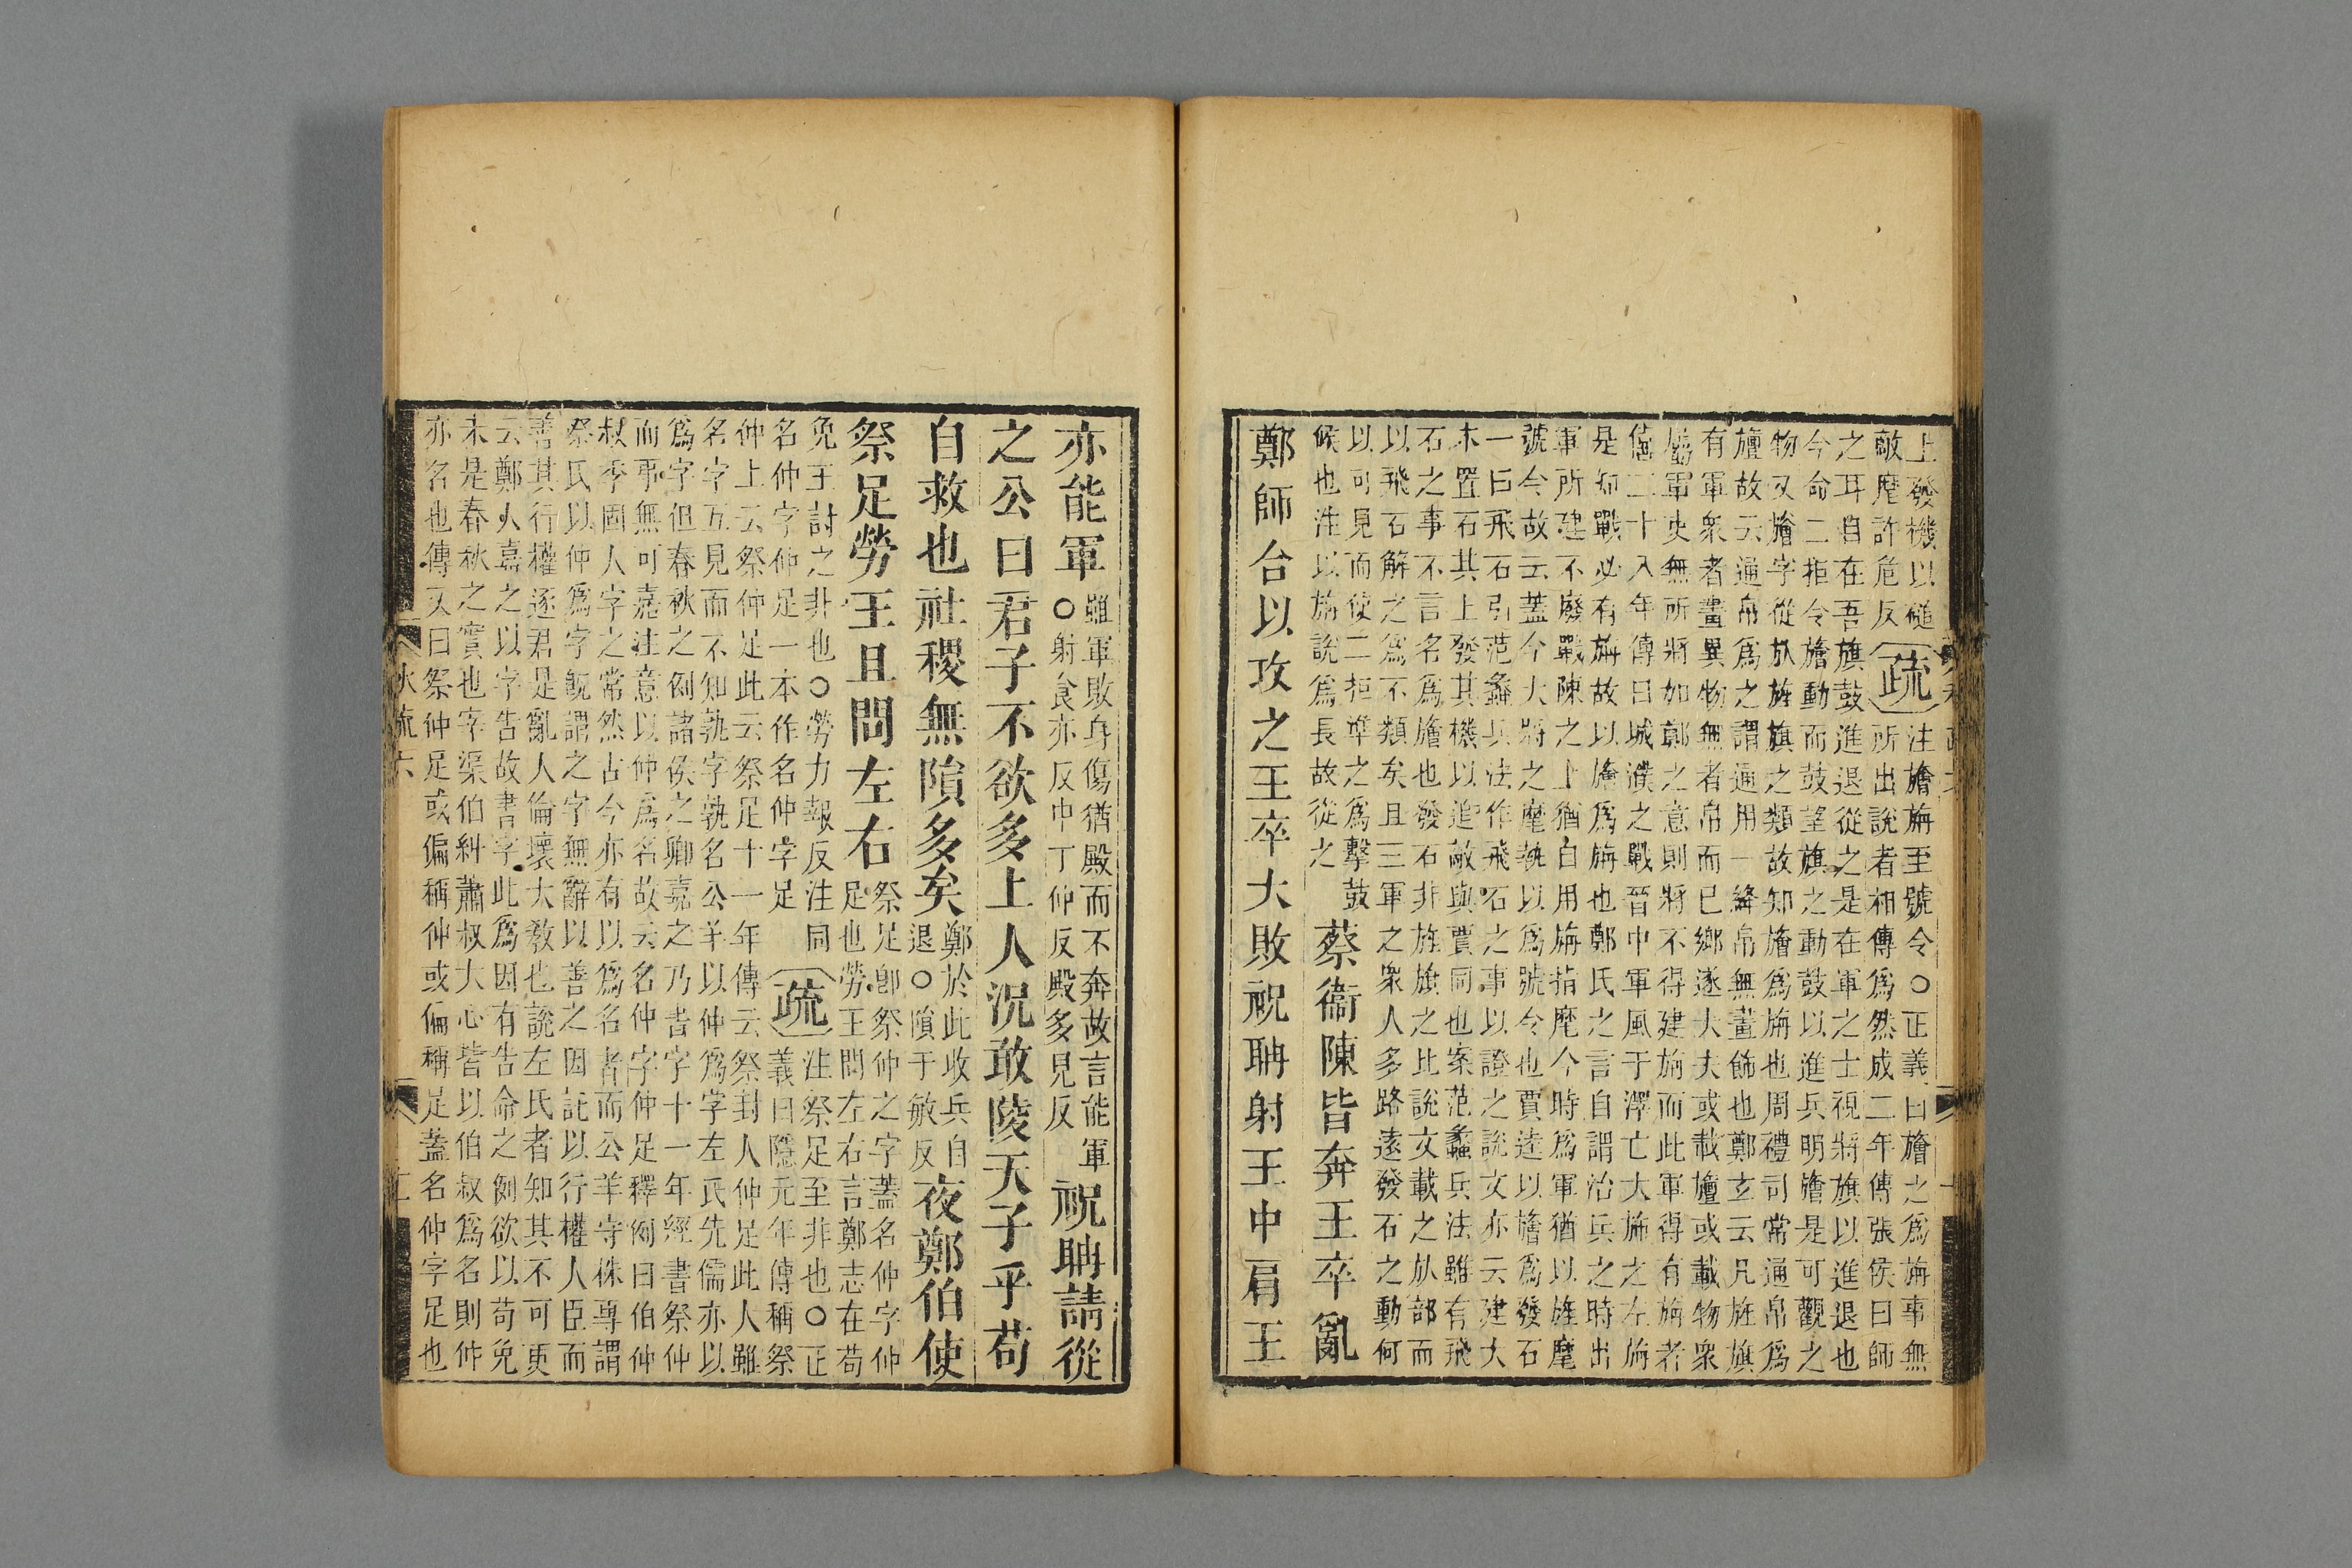 上發機以磓
敵麾許危反
疏
注旝旆至號令○正義曰旝之爲旆事無
所出說者相傳爲然成二年傳張侯曰師
之耳目在吾旗鼓進退從之是在軍之士視將旗以進退也
今命二拒令旝動而鼓望旗之動鼓以進兵明旝是可觀之
物又旝字從㫃旌旗之類故知旝爲旆也周禮司常通帛爲
旜故云通帛爲之謂通用一絳帛無畫飾也鄭玄云凡旌旗
有軍衆者畫異物無者帛而已鄉遂大夫或載旜或載物衆
屬軍吏無所將如鄭之意則將不得建旆而此軍得有旆者
僖二十八年傳曰城濮之戰晉中軍風于澤亡大旆之左旃
是知戰必有旆故以旝爲旆也鄭氏之言自謂治兵之時出
軍所建不廢戰陳之上猶自用旆指麾今時爲軍猶以旌麾
號令故云蓋今大將之麾執以爲號令也賈逵以旝爲發石
一曰飛石引范蠡兵法作飛石之事以證之說文亦云建大
木置石其上發其機以追敵與賈同也案范蠡兵法雖有飛
石之事不言名爲旝也發石非旌旗之比說文載之㫃部而
以飛石解之爲不類矣且三軍之衆人多路遠發石之動何
以可見而使二拒準之爲擊鼓
候也注以旆說爲長故從之
蔡衞陳皆奔王卒亂
鄭師合以攻之王卒大敗祝聃射王中肩王
亦能軍
雖軍敗身傷猶殿而不奔故言能軍
○射食亦反中丁仲反殿多見反
祝聃請從
之公曰君子不欲多上人況敢陵天子乎苟
自救也社稷無隕多矣
鄭於此收兵自
退○隕于敏反
夜鄭伯使
祭足勞王且問左右
祭足卽祭仲之字蓋名仲字仲
足也勞王問左右言鄭志在苟
免王討之非也○勞力報反注同
名仲字仲足一本作名仲字足
疏
注祭足至非也○正
義曰隱元年傳稱祭
仲上云祭仲足此云祭足十一年傳云祭封人仲足此人雖
名字互見而不知孰字孰名公羊以仲爲字左氏先儒亦以
爲字但春秋之例諸侯之卿嘉之乃書字十一年經書祭仲
而事無可嘉注意以仲爲名故云名仲字仲足釋例曰伯仲
叔季固人字之常然古今亦有以爲名者而公羊守株專謂
祭氏以仲爲字旣謂之字無辭以善之因託以行權人臣而
善其行權逐君是亂人倫壞大教也說左氏者知其不可更
云鄭人嘉之以字告故書字此爲因有告命之例欲以苟免
未是春秋之實也宇渠伯糾蕭叔大心皆以伯叔爲名則仲
亦名也傳又曰祭仲足或偏稱仲或偏稱足蓋名仲字足也